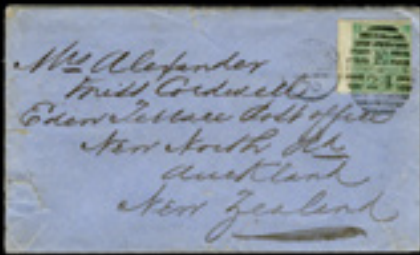 Mrs Alexander
Miss Cordwell
Eden Terrace Post office
New North Rd
Auckland
New Zealand